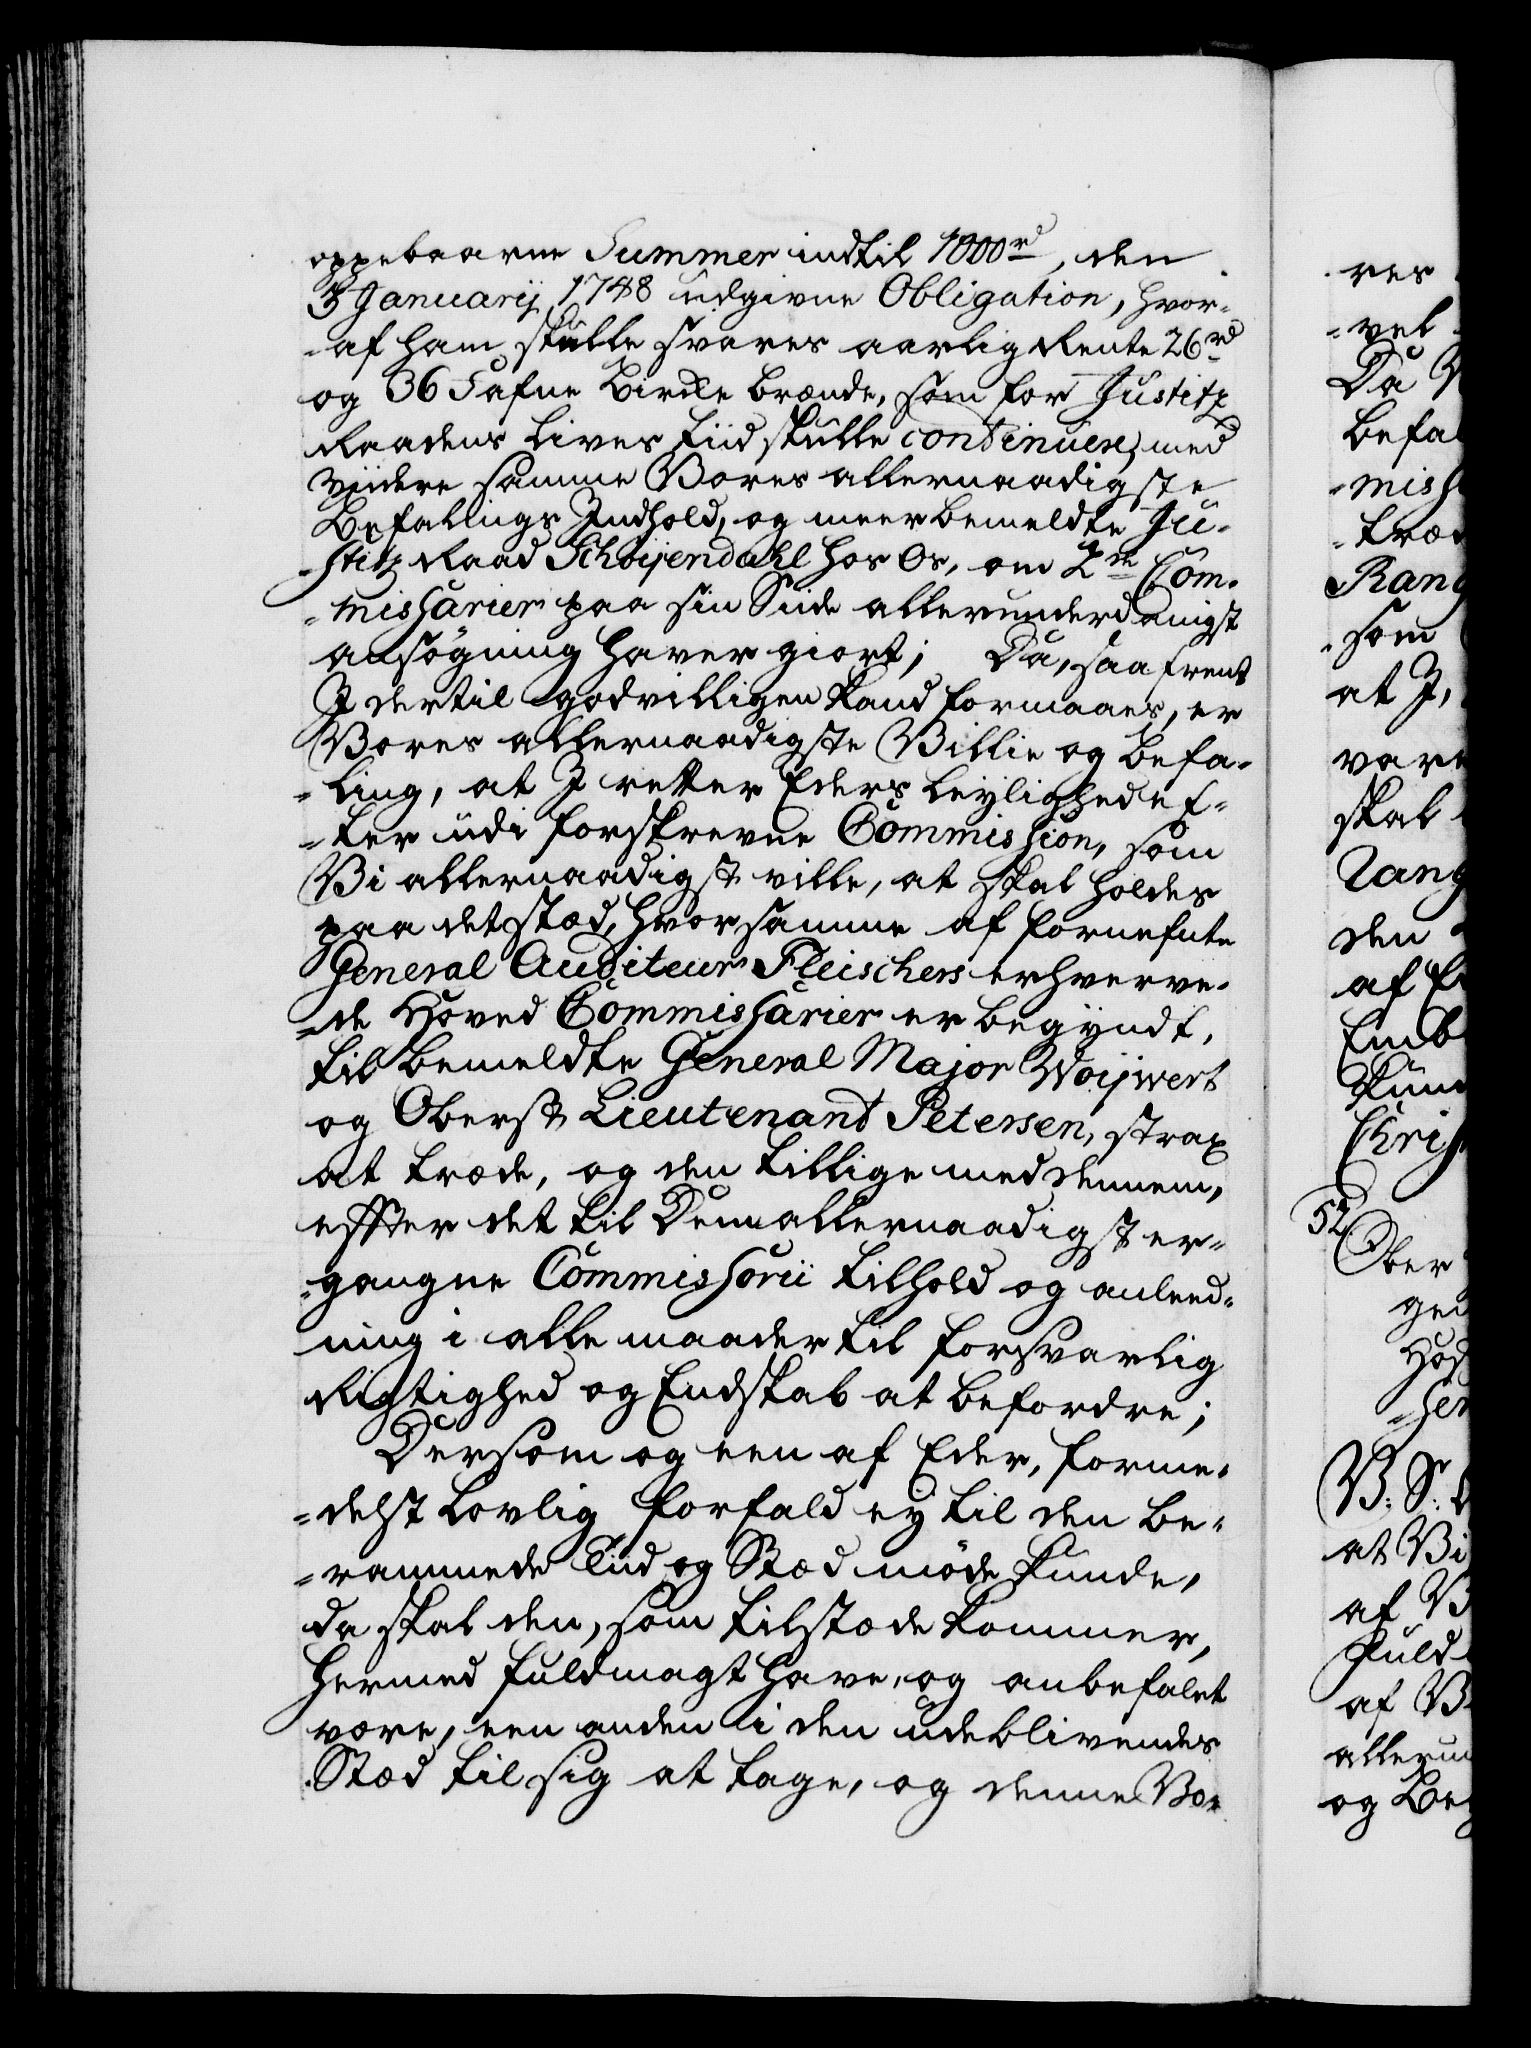 oppebaarne Summer indtil 1000rd, den
3 Januarij 1748 udgivne Obligation, hvor-
-af ham skulle svares aarlig Rente 26rd
og 36 Fafne Birke brænde, som for Justitz
Raadens Lives tiid skulle continuere, med
viidere samme Vores allernaadigste
Befalings Indhold, og meerbemeldte Ju-
-stitz Raad Schøijendahl hos Os, om 2de Com-
-missarier paa sin Siide allerunderdanigst
ansøgning haver giort; Da, saafremt
I dertil godvilligen kand formaaes, er
Vores allernaadigste Villie og Befa-
-ling, at I retter Eders Leyligheed ef-
-ter udi forskrevne Commission, som
Vi allernaadigst ville, at skal holdes
paa det stæd, hvor samme af fornefnte
General Auditeur Fleischers erhverve-
-de Hoved Commissarier er begyndt,
til bemeldte General Major Woijwert
og Oberst Lieutenant Petersen, strax
at træde, og den tillige med dennem,
effter det til Dem allernaadigst er-
-gangne Commissorii tilhold og anleed-
ning i alle maader til forsvarlig
Rigtighed og Endskab at befordre;
Dersom og een af Eder, forme-
-delst Lovlig forfald ey til den be-
-rammede Tiid og Stæd møde kunde,
da skal den, som tilstæde kommer,
hermed fuldmagt have, og anbefalet
være, een anden i den udeblivendes
Stæd til sig at tage, og denne Vor
res
-vel
Da V
befal
-miss
-træd
Rang
-som
at I,
vare
skal
Rang
den
af E
Emb
kun
Chris
52.
Ober
gen
Hos
-ser
V: S:
at Vi
af V
Fuld
af V
allerun
og Be